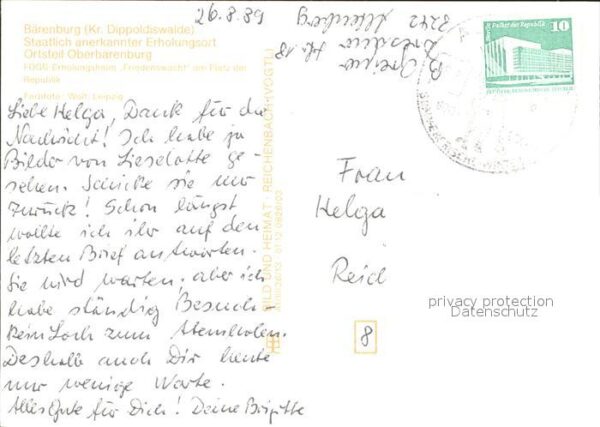 26.8.89
Bärenburg (Kr. Dippoldiswalde)
Staatlich anerkannter Erholungsort
Ortsteil Oberbärenburg
FDGB-Erholungsheim „Friedenswacht" am Platz der
Republik
Farbfoto: Weit, Leipzig
Liebe Helga, Dank für die
Nachricht! Ich habe ja
Bilder von Lieselotte ge-
sehen. Schicke sie nur
zurück! Schon längst
wollte ich ihr auf den
letzten Brief antworten.
Sie wird warten, aber ich
habe ständig Besuch -
kein Loch zum Atemholen.
Deshalb auch Dir heute
nur wenige Worte.
Alles Gute für Dich! Deine Brigitte
BILD UND HEIMAT · REICHENBACH (VOGTL)
B.
Dresdner Str. 18
8242 Altenberg
Palast der Republik
10
Frau
Helga
Reid
8
privacy protection
Datenschutz